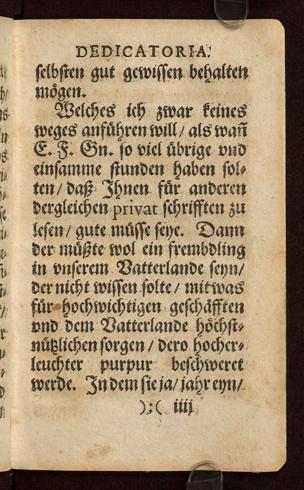 DEDICATORIA.
selbsten gut gewissen behalten
mögen.
Welches ich zwar keines
weges anführen will / als wañ
E. F. Gn. so viel übrige vnd
einsamme stunden haben sol-
ten / daß Ihnen für anderen
dergleichen privat schrifften zu
lesen / gute müsse seye. Dann
der müßte wol ein frembdling
in vnserem Vatterlande seyn /
der nicht wissen solte / mit was
für hochwichtigen geschäfften
vnd dem Vatterlande höchst-
nützlichen sorgen / dero hocher-
leuchter purpur beschweret
werde. In dem sie ja / jahr eyn /
):( iiij